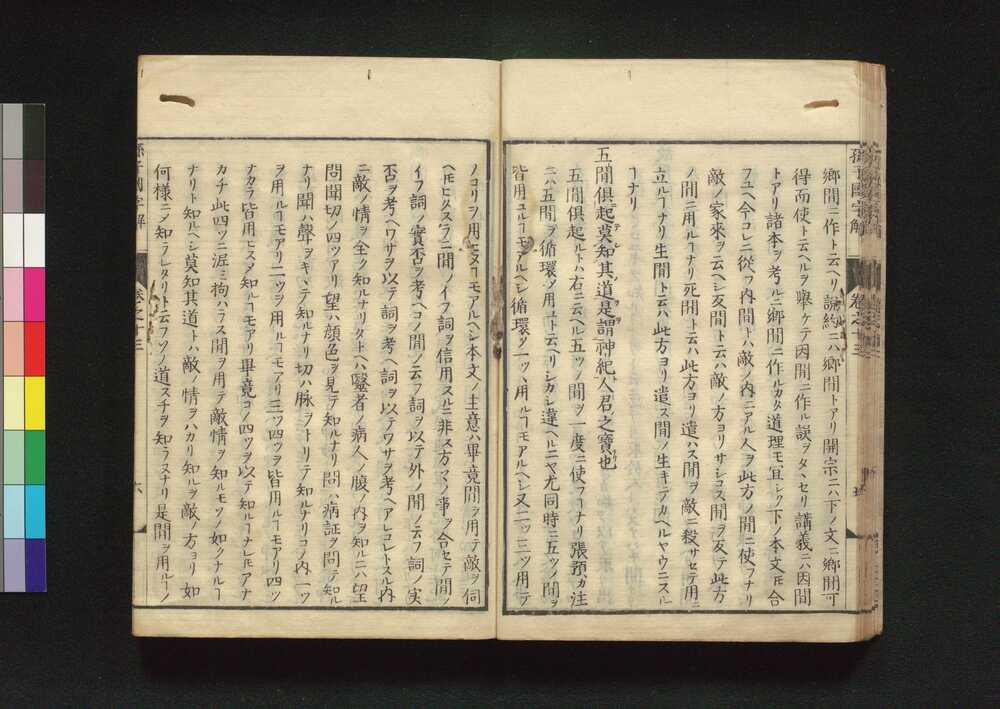 孫子國字解 卷之十三
鄕間ニ作ト云ヘリ説約ニハ鄕間トアリ開宗ニハ下ノ文ニ鄕間可
得而使ト云ヘルヲ擧ケテ因間ニ作ル誤ヲタヽセリ講義ニハ因間
トアリ諸本ヲ考ルニ鄕間ニ作ルカタ道理モ宜シク下ノ本文ニモ合
フユヘ今コレニ從フ内間トハ敵ノ内ニアル人ヲ此方ノ間ニ使フナリ
敵ノ家來ヲ云ヘシ反間ト云ハ敵ノ方ヨリサシコス間ヲ反テ此方
ノ間ニ用ルヿナリ死間ト云ハ此方ヨリ遣ハス間ヲ敵ニ殺サセテ用ニ
立ルヿナリ生間ト云ハ此方ヨリ遣ス間ノ生キテカヘルヤウニスル
ヿナリ
五間俱起莫知其道是謂神紀人君之寶也
五間俱起ルトハ右ニ云ヘル五ツノ間ヲ一度ニ使フヿナリ張預カ注
ニハ五間ヲ循環シ用ユト云ヘリシカシ違ヘルニヤ尤同時ニ五ツノ間ヲ
皆用ユルヿモアルヘシ循環シテ一ツヽ用ルヿモアルヘシ又二ツ三ツ用テ
ノコリヲ用ヒヌヿモアルヘシ本文ノ主意ハ畢竟間ヲ用テ敵ヲ伺
ヘヒタスラニ間ノイフ詞ヲ信用スルニ非ス方々ノ事ヲ合セテ間ノ
イフ詞ノ實否ヲ考ヘコノ間ノ云フ詞ヲ以テ外ノ間ノ云フ詞ノ実
否ヲ考ヘワサヲ以テ詞ヲ考ヘ詞ヲ以テワサヲ考ヘアレコレトスル内
ニ敵ノ情ヲ全ク知ルナリタトヘハ醫者ノ病人ノ腹ノ内ヲ知ルニハ望
問聞切ノ四ツアリ望ハ顔色ヲ見テ知ルナリ問ハ病証ヲ問テ知ル
ナリ聞ハ聲ヲキヽテ知ルナリ切ハ脉ヲトリテ知ルナリコノ内一ツ
ヲ用ルヿモアリ二ツヲ用ルヿモアリ三ツ四ツヲ皆用ルヿモアリ四ツ
ナカラ皆用ヒスメ知ルヿモアリ畢竟コノ四ツヲ以テ知ルヿナレ𪜈アナ
カチ此四ツニ泥ミ拘ハラス間ヲ用テ敵情ヲ知ルモソノ如クナルヿ
ナリト知ルヘシ莫知其道トハ敵ノ情ヲハカリ知ルヲ敵ノ方ヨリ如
何様ニメ知ラレタリト云フソノ道スチヲ知ラヌナリ是間ヲ用ルヿノ
孫子國字解 卷之十三 六